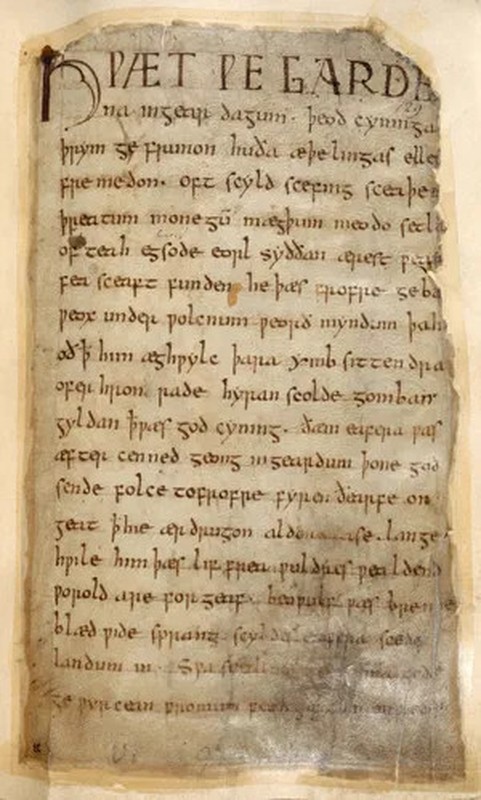 HǷÆT ǷE GARDE
na ingear dagum. þeod cyninga
þrym ge frunon huða æþelingas elle
fremedon. oft scyld scefing sceaþe
þreatum monegū mægþum meodo setla
of teah egsode eorl syððan ærest ƿe
fea sceaft funden he þæs frofre geba
ƿeox under ƿolcnum ƿeorð myndum þah
oð þ him æghƿylc þara ymb sittendra
ofer hron rade hyran scolde gomban
gyldan þ ƿæs god cyning. ðæm eafera ƿæs
æfter cenned geong ingeardum þone god
sende folce tofrofre fyren ðearfe on
geat þ hie ær drugon aldor ase. lange
hƿile him þæs lif frea ƿuldres ƿealdend
ƿorold are for geaf. beoƿulf ƿæs breme
blæd ƿide sprang scyldes eafera scede
landum in. Sƿa
ge ƿyrcean fromum